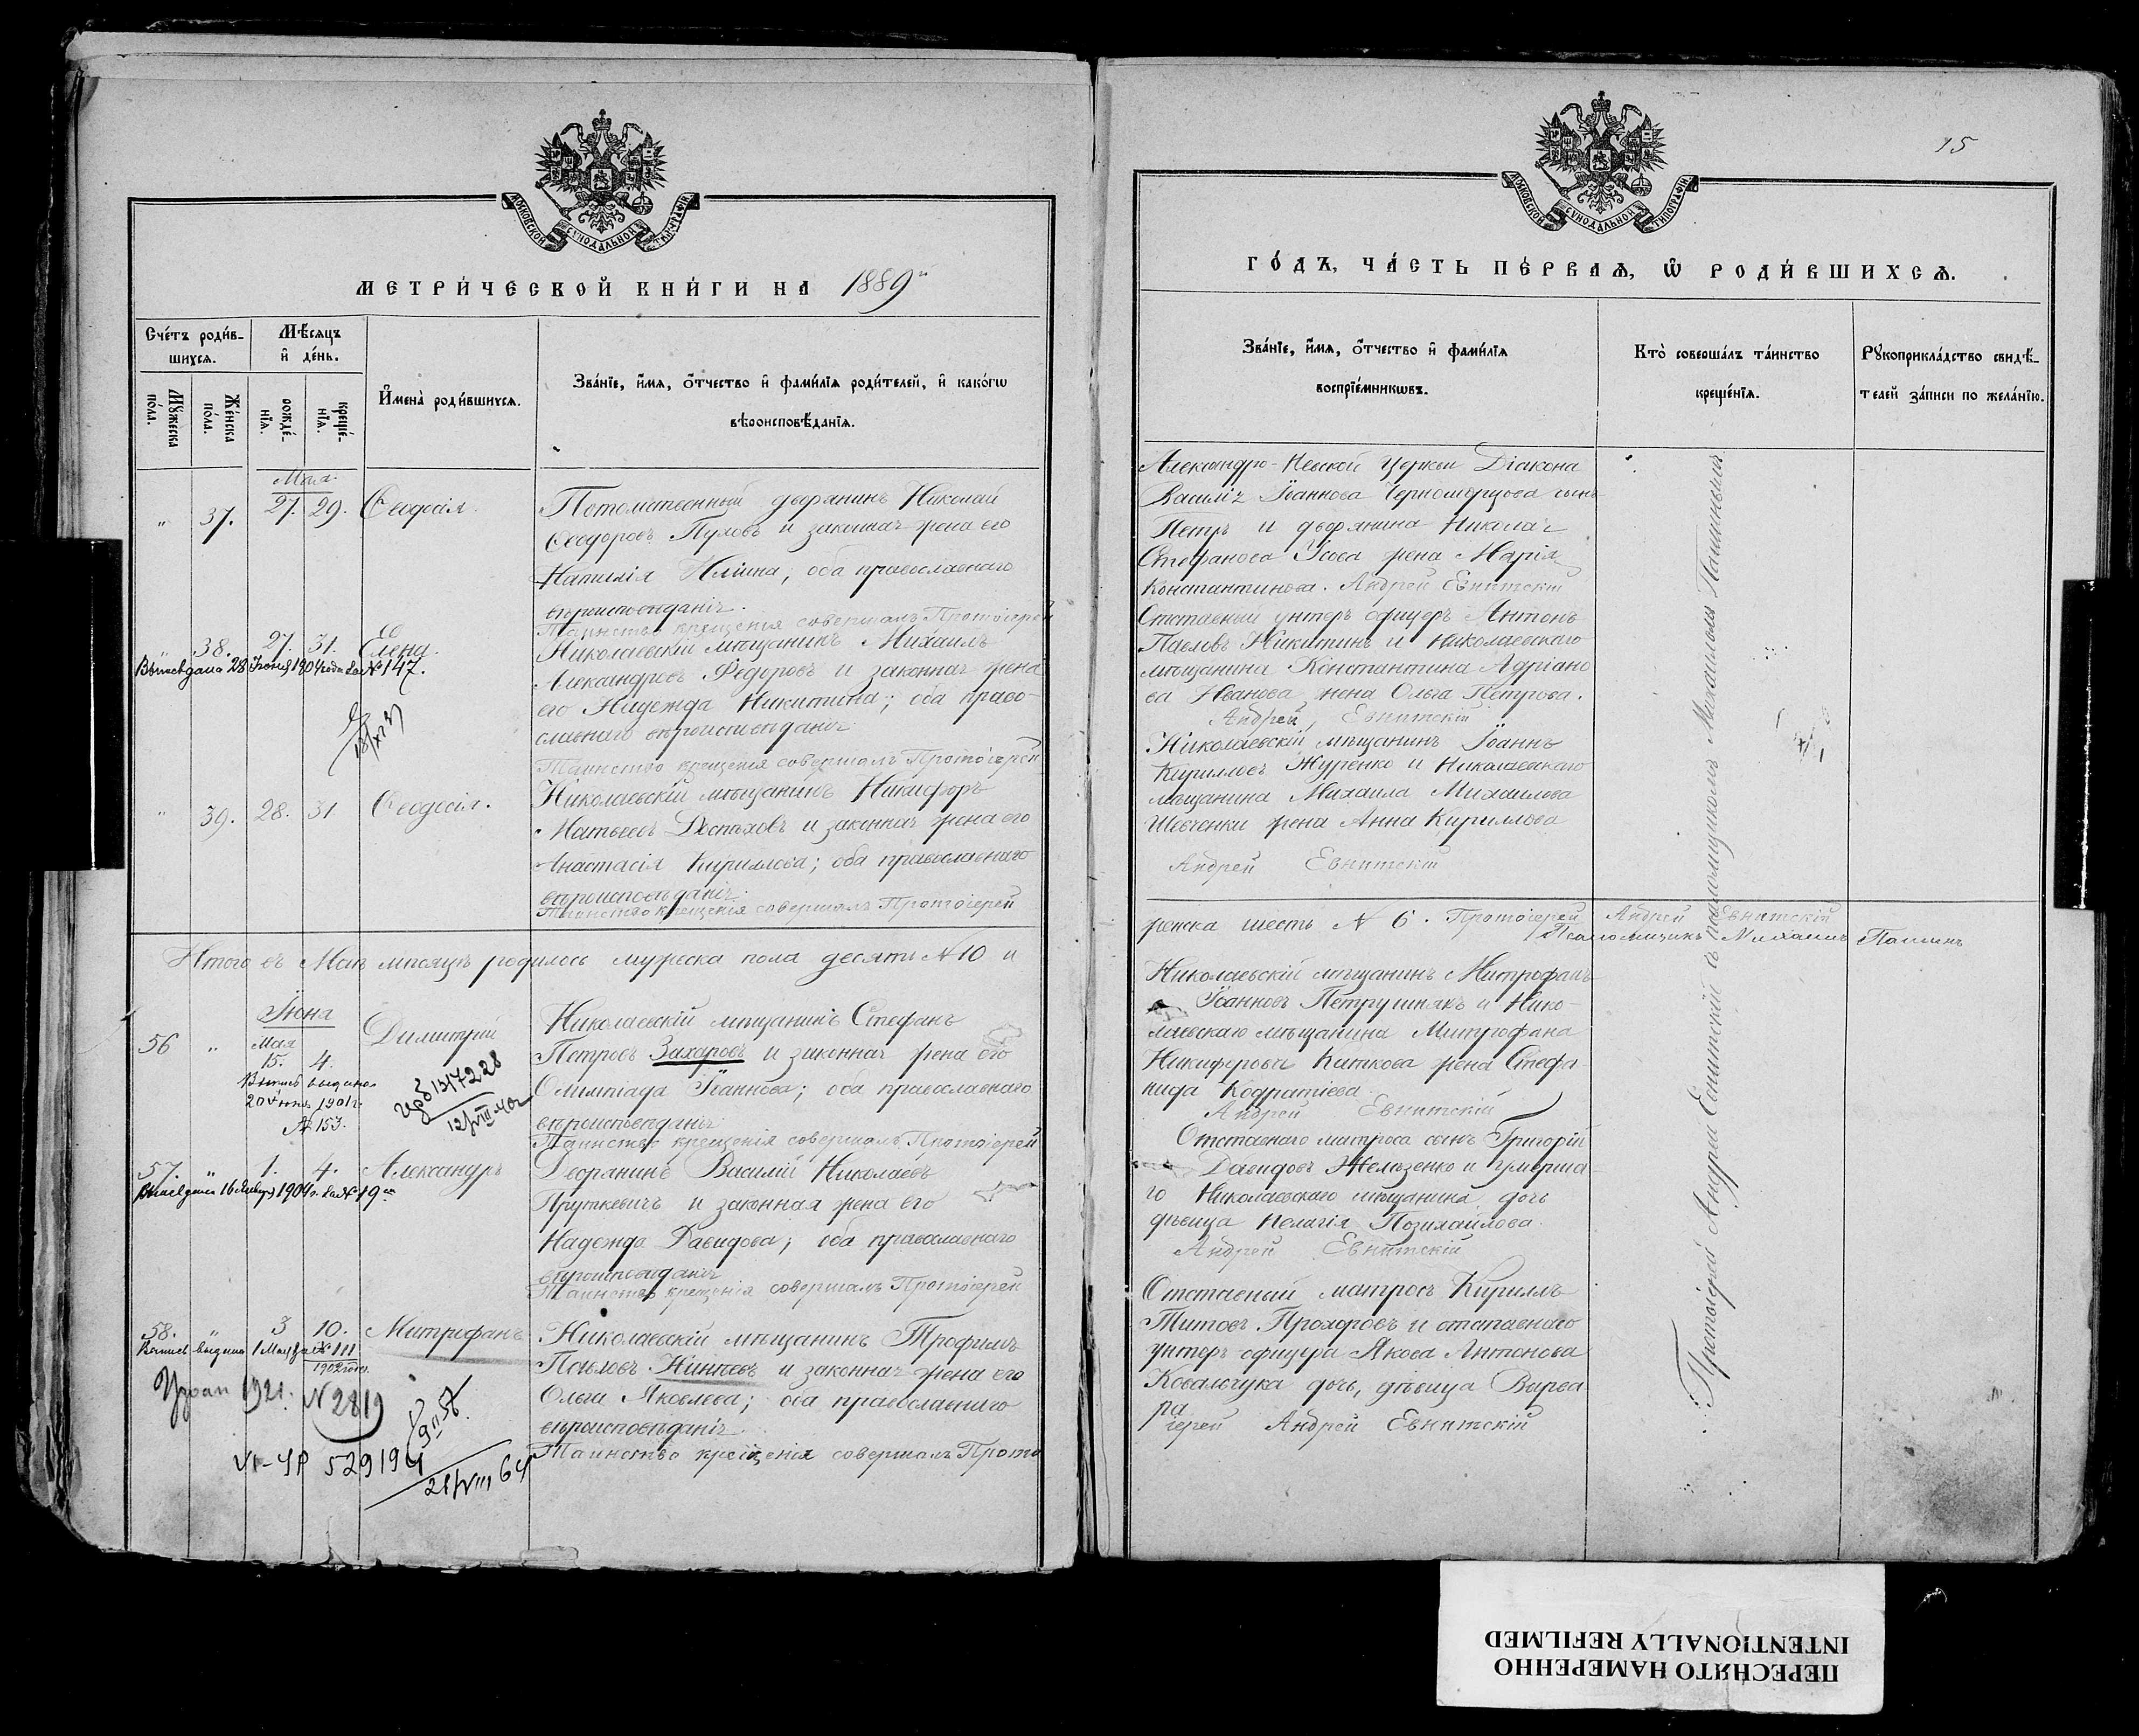 МОСКОВСКОЙ СѴНОДАЛЬНОЙ ТИПОГРАФІИ
МЕТРИ́ЧЕСКОЙ КНИ́ГИ НА 1889й
Сче́тъ роди́в-
шихся.
Мѣ́сяцъ
и҆ де́нь.
Мꙋ́жеска
по́ла.
Же́нска
по́ла.
рожде́-
нїѧ.
креще́-
нїѧ.
И҆мена̀ роди́вшихся.
Зва́нїе, и҆́мѧ, ѻ҆́тчество и҆ фами́лїѧ роди́телей, и҆ како́гѡ
вѣроисповѣ́данїѧ.
Мая.
" 37. 27. 29. Ѳеодосія.
Потомственный дворянинъ Николай
Ѳеодоровъ Пуховъ и законная жена его
Наталія Ильина, оба православнаго
вѣроисповѣданія.
Таинство крещенія совершалъ Протоіерей
38. 27. 31. Елена.
Выпись дана 28 Іюня 1904 года за № 147.
Николаевскій мѣщанинъ Михаилъ
Александровъ Ѳедоровъ и законная жена
его Надежда Никитина; оба право-
славнаго вѣроисповѣданія
Таинство крещенія совершалъ Протоіерей
" 39. 28. 31 Ѳеодосія.
Николаевскій мѣщанинъ Никифоръ
Матвеевъ Доспѣховъ и законная жена его
Анастасія Кириллова; оба православнаго
вѣроисповѣданія.
Таинство крещенія совершалъ Протоіерей
Итого въ Маѣ мѣсяцѣ родилось мужеска пола десять № 10 и
Іюня
56 " Мая
15. 4. Димитрій
Выпись выдана
20 1901г.
№ 153.
1317228
12/VIII 40г
Николаевскій мѣщанинъ Стефанъ
Петровъ Захаровъ и законная жена его
Олимпіада Іоаннова; оба православнаго
вѣроисповѣданія
Таинство крещенія совершалъ Протоіерей
57. " 1. 4. Александръ
Выпись дана 16 Января 1904 г. за № 19
Дворянинъ Василій Николаевъ
Пруткевичъ и законная жена его
Надежда Давидова; оба православнаго
вѣроисповѣданія
Таинство крещенія совершалъ Протоіерей
58. " 3 10. Митрофанъ
Выпись выдана 1 Мая за № 111
1902 года.
1921. № 2819
529194
28/VIII 64
Николаевскій мѣщанинъ Трофимъ
Павловъ и законная жена его
Ольга Яковлева; оба православнаго
вѣроисповѣданія.
Таинство крещенія совершалъ Прото
15
МОСКОВСКОЙ СѴНОДАЛЬНОЙ ТИПОГРАФІИ
ГО́ДЪ, ЧА́СТЬ ПЕ́РВАѦ, Ѡ҆ РОДИ́ВШИХСѦ.
Зва́нїе, и҆́мѧ, ѻ҆́тчество и҆ фами́лїѧ
воспрїе́мникѡвъ.
Кто̀ соверша́лъ та́инство
креще́нїѧ.
Рꙋкоприкла́дство свидѣ́-
телей за́писи по жела́нїю.
Александро-Невской церкви Діакона
Василія Іоаннова Черноморцова сынъ
Петръ и дворянина Николая
Стефанова Усова жена Марія
Константинова. Андрей Евнитскій
Отставной унтеръ офицеръ Антонъ
Павловъ Никитинъ и Николаевскаго
мѣщанина Константина Адріано
ва Иванова жена Ольга Петрова.
Андрей Евнитскій
Николаевскій мѣщанинъ Іоаннъ
Кирилловъ Журенко и Николаевскаго
мѣщанина Михаила Михаилова
Шевченки жена Анна Кириллова
Андрей Евнитскій
женска шесть № 6. Протоіерей Андрей Евнитскій
Псаломщикъ Михаилъ Пашинъ
Николаевскій мѣщанинъ Митрофанъ
Іоанновъ Петрушнякъ и Нико-
лаевскаго мѣщанина Митрофана
Никифорова Киткова жена Стефа-
нида Кодратіева.
Андрей Евнитскій
Отставнаго матроса сынъ Григорій
Давидовъ Желѣзенко и умерша-
го Николаевскаго мѣщанина дочь
дѣвица Пелагія
Андрей Евнитскій
Отставный матросъ Кириллъ
Титовъ Прохоровъ и отставнаго
унтеръ офицера Якова Антонова
Ковальчука дочь, дѣвица Варва
ра
іерей Андрей Евнитскій
Протоіерей Андрей Евнитскій съ псаломщикомъ Михаиломъ Пашинымъ
ПЕРЕСНЯТО НАМЕРЕННО
INTENTIONALLY REFILMED